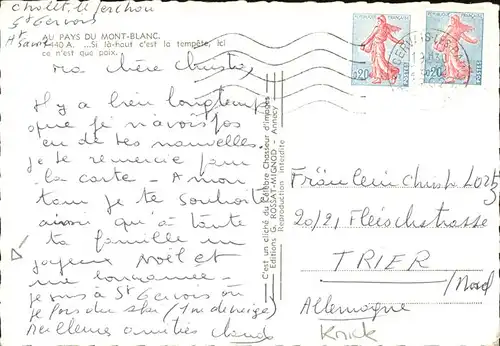 Chalet le
St Gervais
Hte Savoie
AU PAYS DU MONT-BLANC.
440 A. ...Si là-haut c'est la tempête, ici
ce n'est que paix...
ma chère Christa,
il y a bien longtemps
que je n'avais pas
eu de tes nouvelles.
je te remercie pour
la carte - A mon
tour je te souhaite
ainsi qu'à toute
ta famille un
joyeux NOËL et
une bonne année -
je suis à St Gervais où
je fais du ski (1m de neige)
meilleures amitiés
C'est un cliché du Célèbre Chasseur d'images
Editions G. ROSSAT-MIGNOD - Annecy
Reproduction interdite
REPUBLIQUE FRANÇAISE
0,20
POSTES
REPUBLIQUE FRANÇAISE
0,20
POSTES
Fräulein Christ Lotz
20/21 Fleischstrasse
TRIER
/Nord
Allemagne
Knick